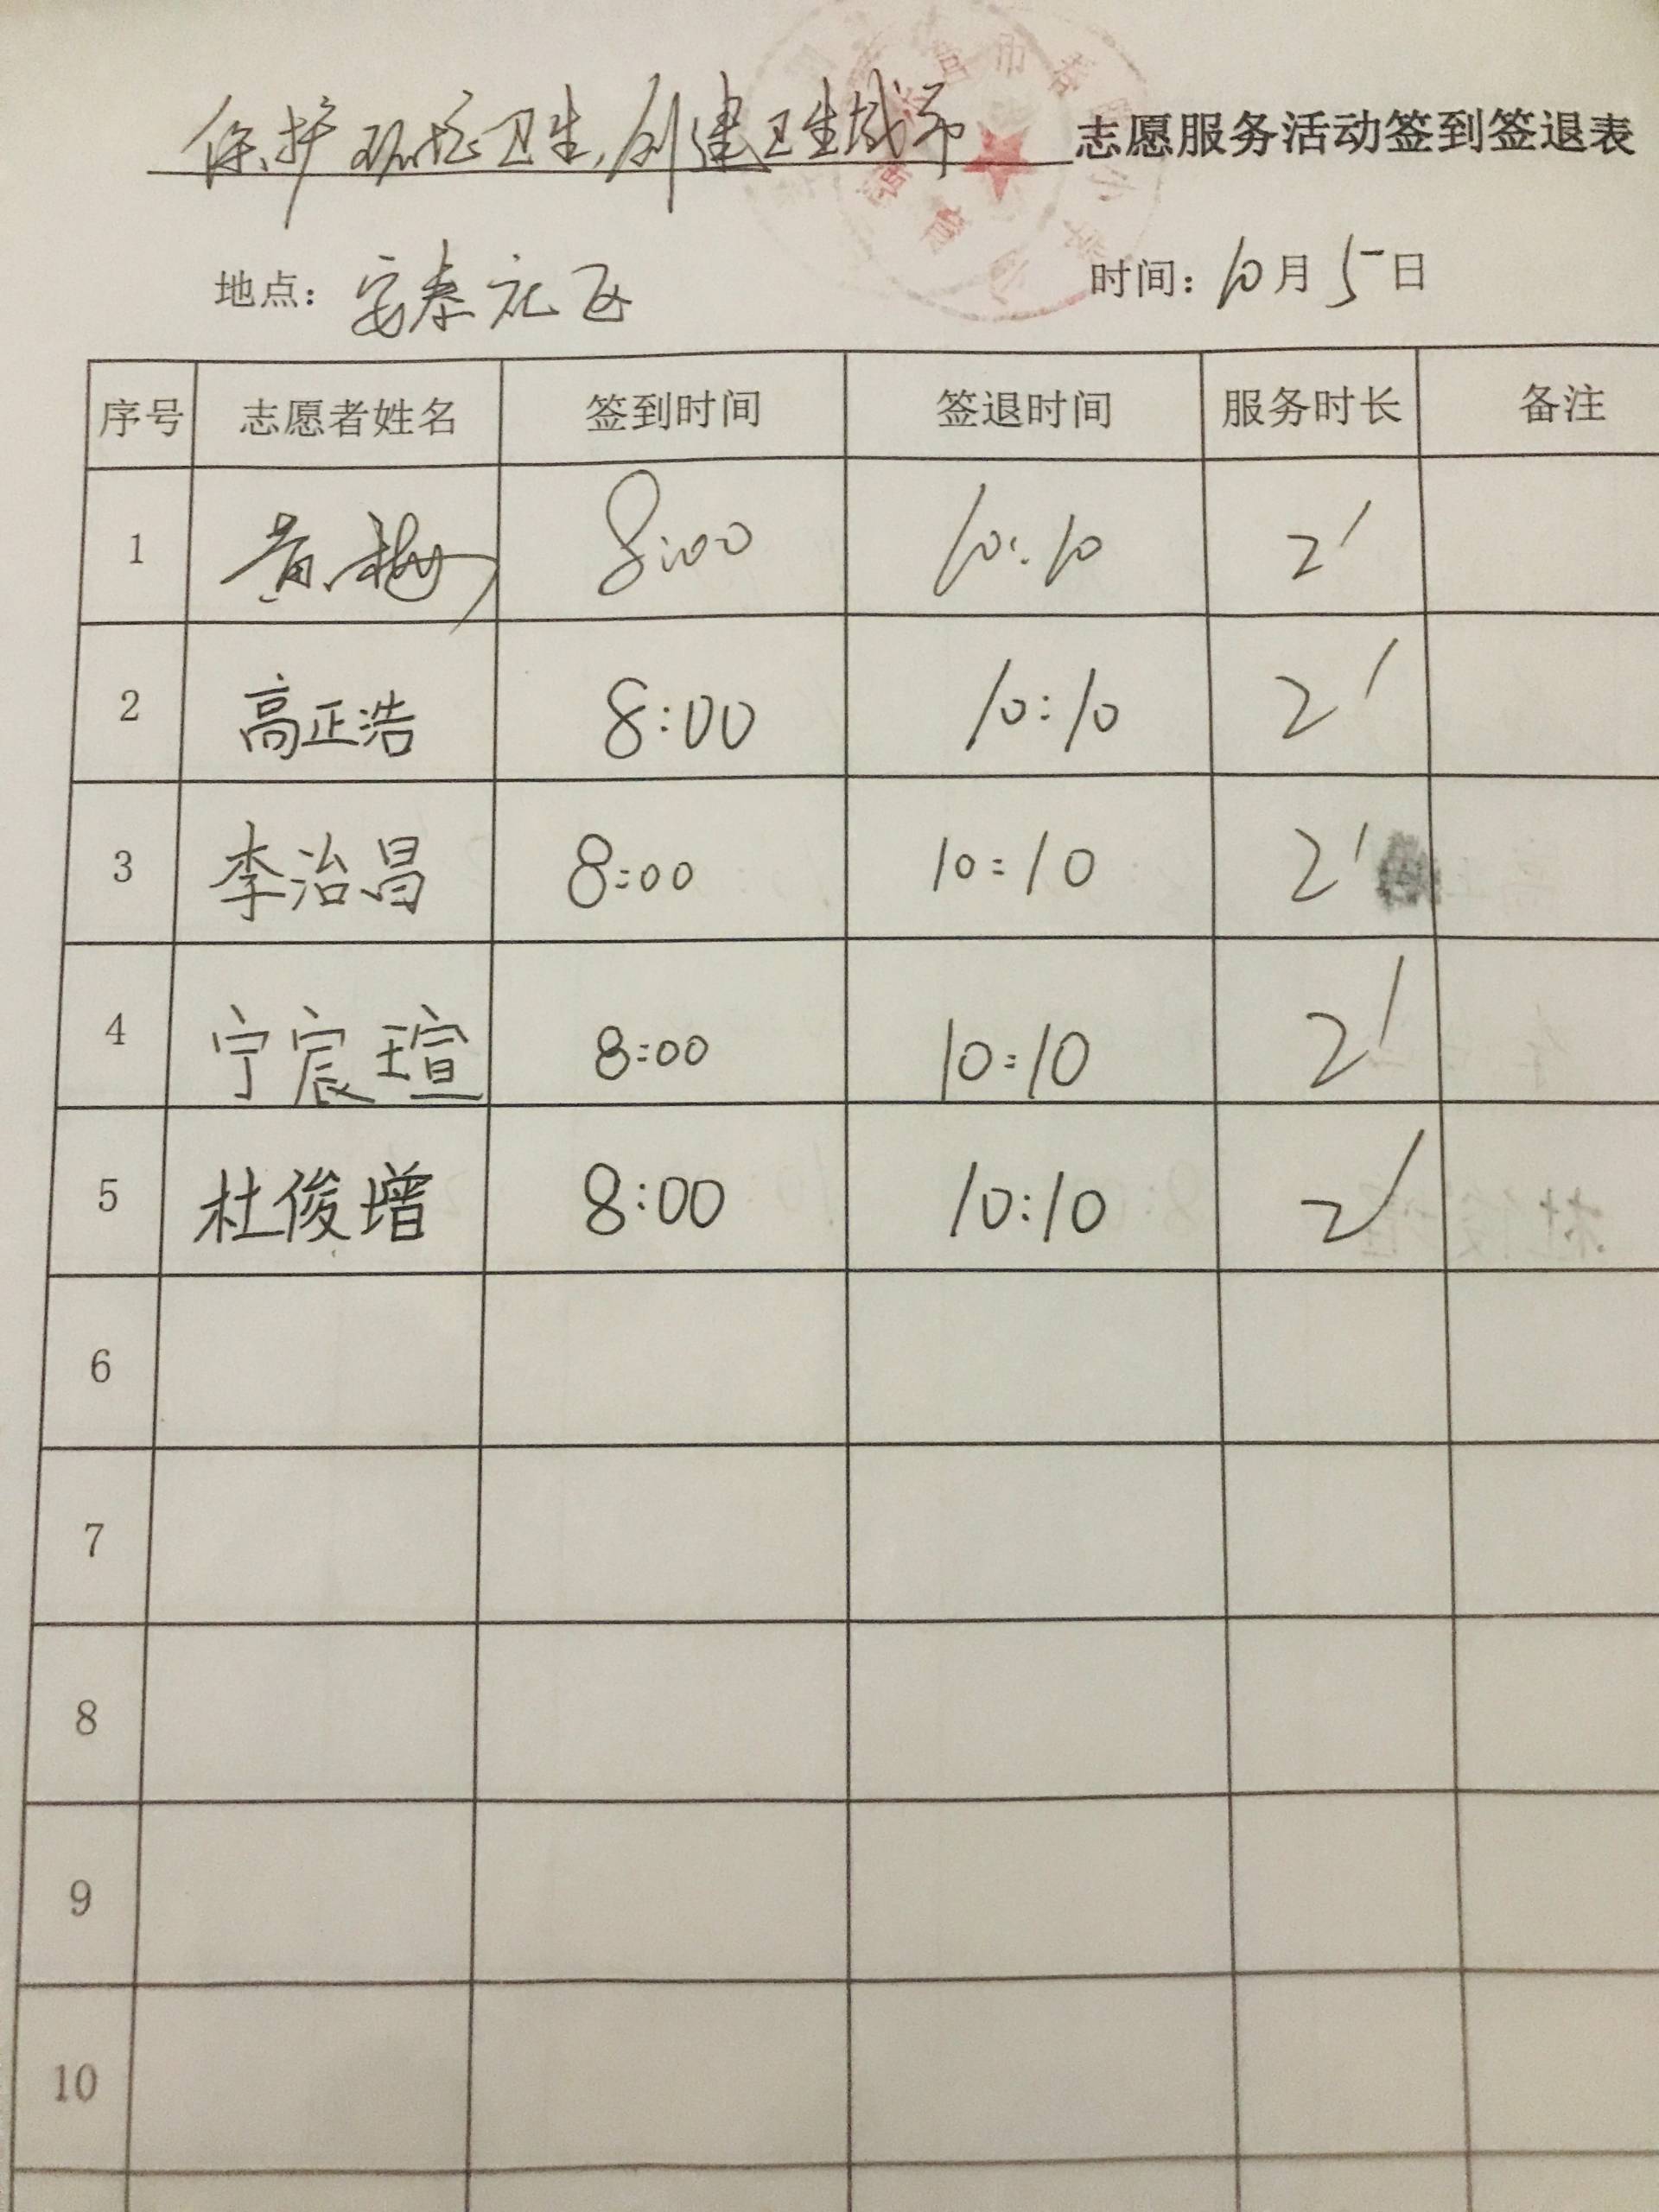 保护环境卫生,创建卫生城市 志愿服务活动签到签退表
地点: 安泰社区 时间: 10月5日
序号 志愿者姓名 签到时间 签退时间 服务时长 备注
1 黄梅 8:00 10:10 2'
2 高正浩 8:00 10:10 2'
3 李治昌 8:00 10:10 2'
4 宁宸瑄 8:00 10:10 2'
5 杜俊增 8:00 10:10 2'
6
7
8
9
10